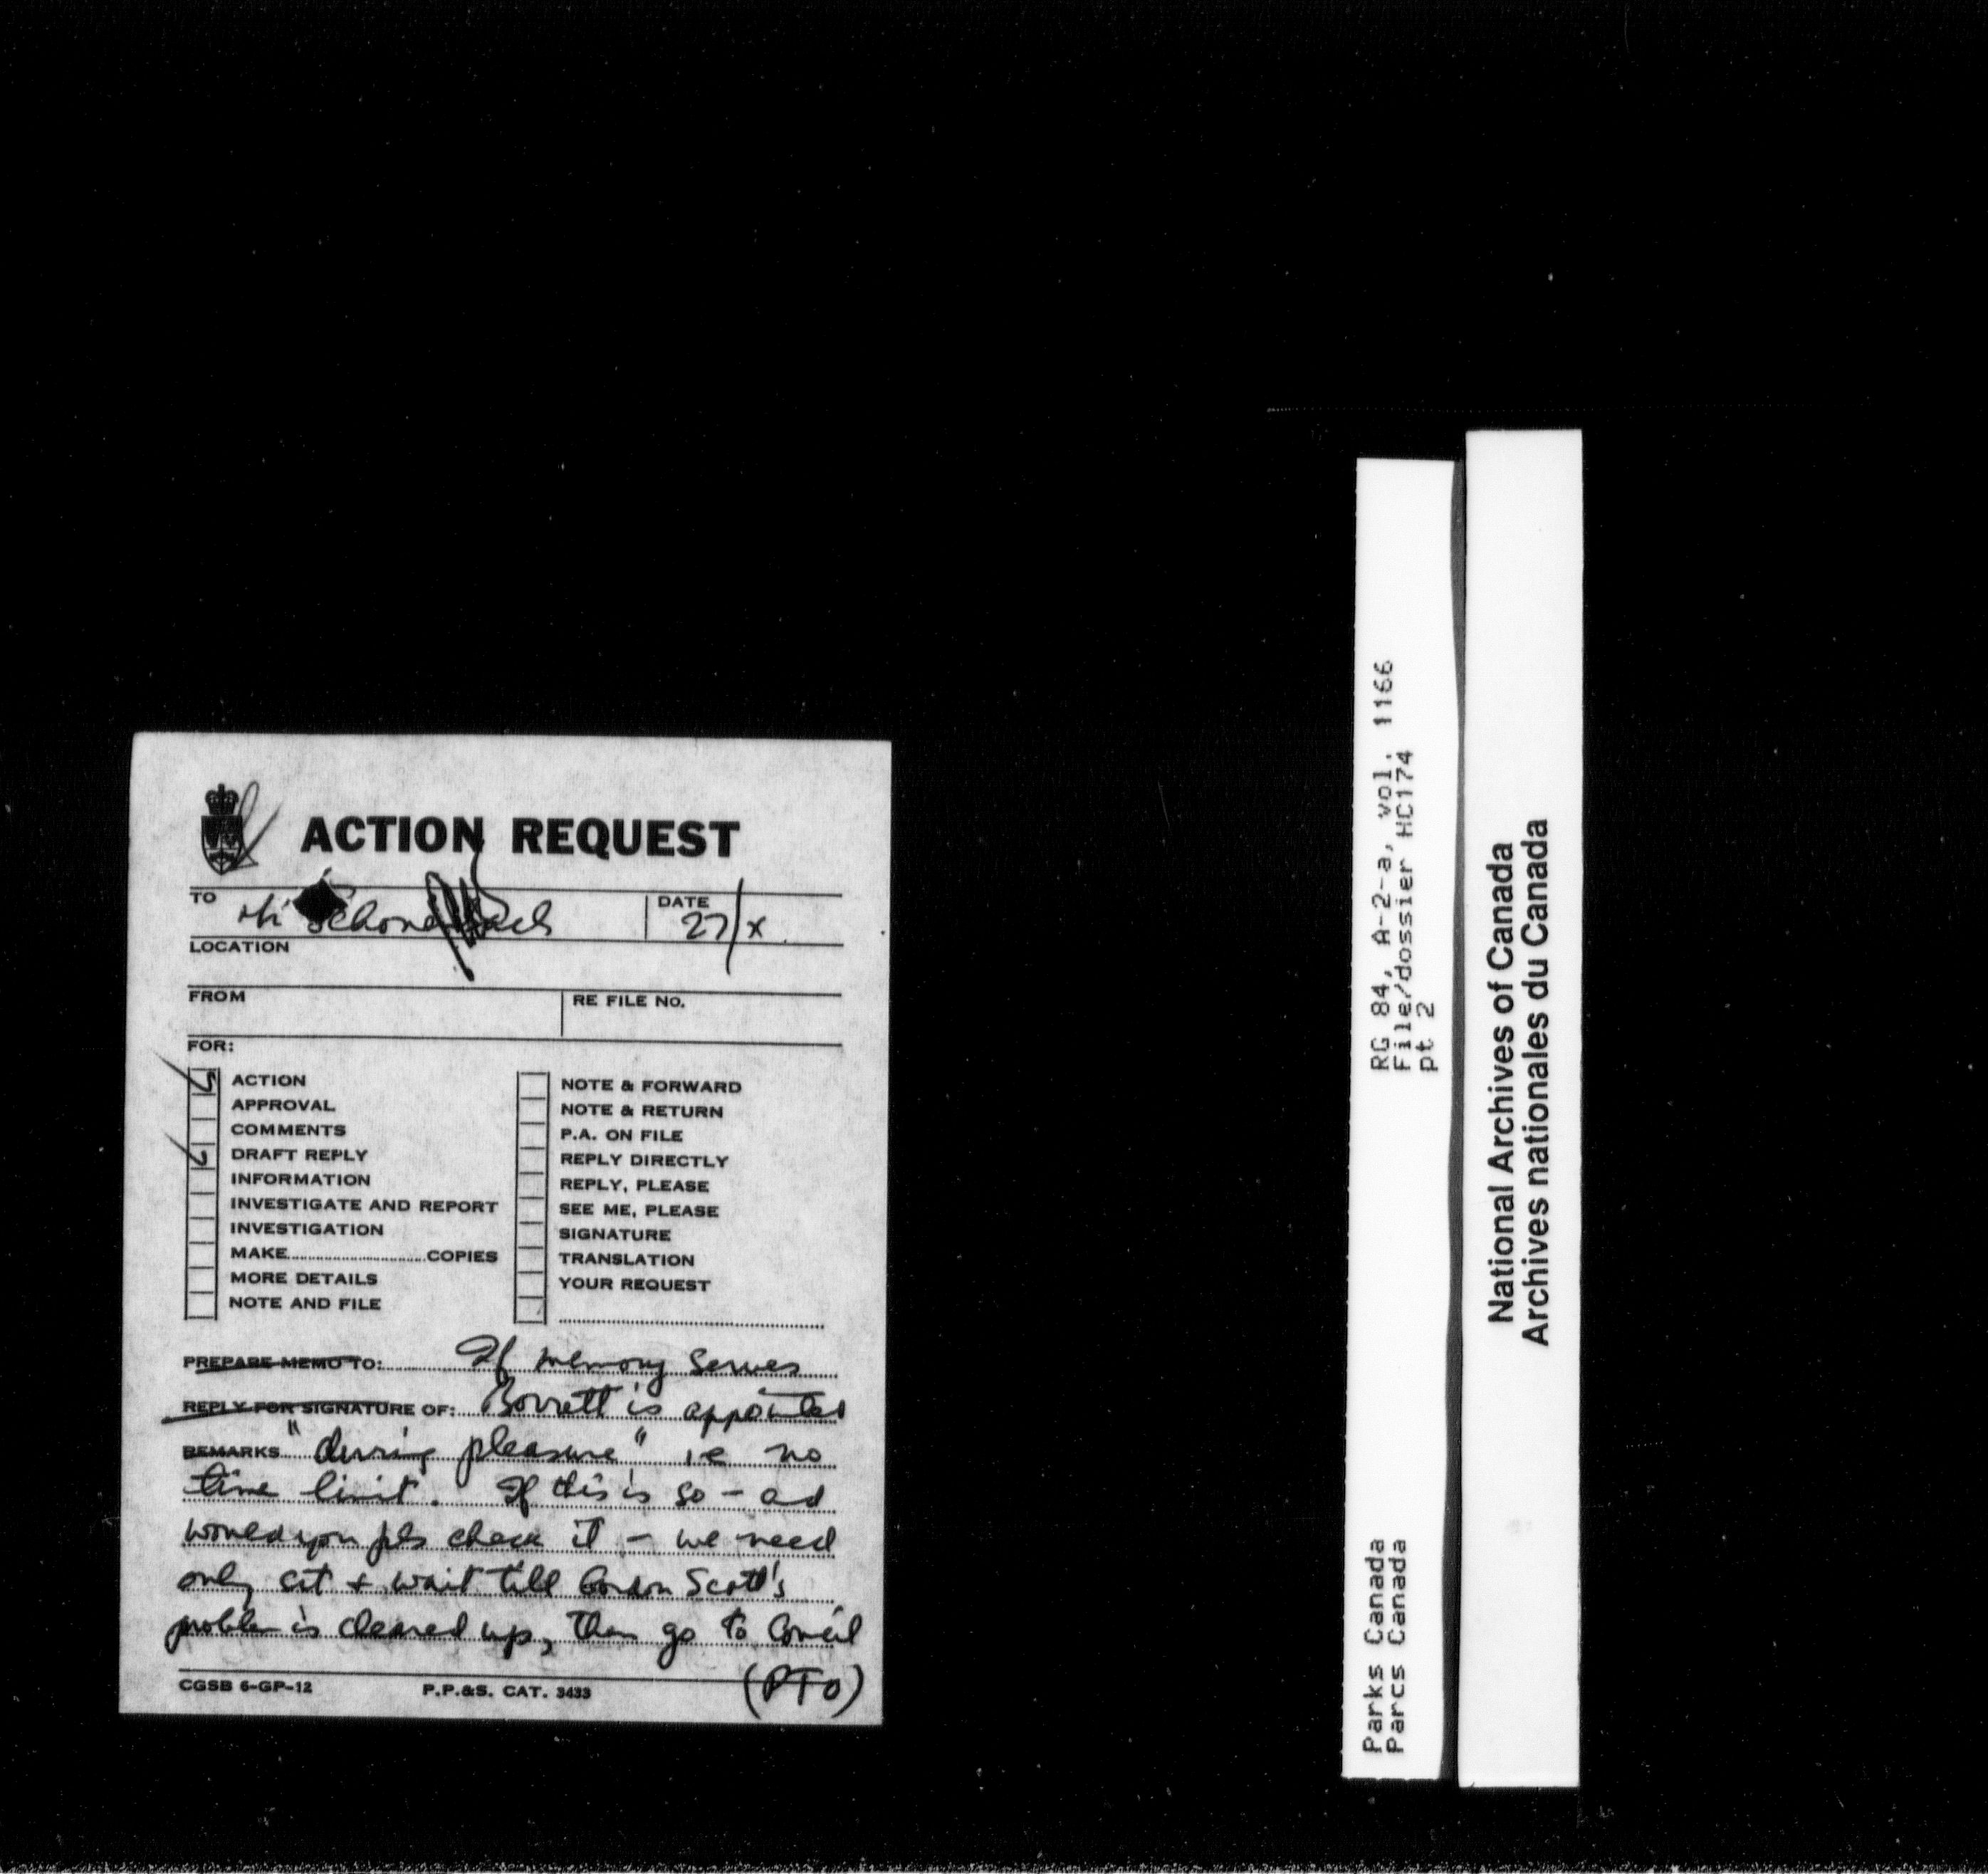 ACTION REQUEST
TO Mr Schonenbach DATE 27/X
LOCATION
FROM RE FILE NO.
FOR:
ACTION
APPROVAL
COMMENTS
DRAFT REPLY
INFORMATION
INVESTIGATE AND REPORT
INVESTIGATION
MAKE COPIES
MORE DETAILS
NOTE AND FILE
NOTE & FORWARD
NOTE & RETURN
P.A. ON FILE
REPLY DIRECTLY
REPLY, PLEASE
SEE ME, PLEASE
SIGNATURE
TRANSLATION
YOUR REQUEST
PREPARE MEMO TO: If memory serves
REPLY FOR SIGNATURE OF: Borrett is appointed
REMARKS "during pleasure" ie no
time limit. If this is so - and
would you pls check it - we need
only sit + wait till Gordon Scott's
problem is cleared up, then go to Council
(PTO)
CGSB 6-GP-12 P.P.&S. CAT. 3433
RG 84, A-2-a, vol. 1166
File/dossier HC174
pt 2
Parks Canada
Parcs Canada
National Archives of Canada
Archives nationales du Canada